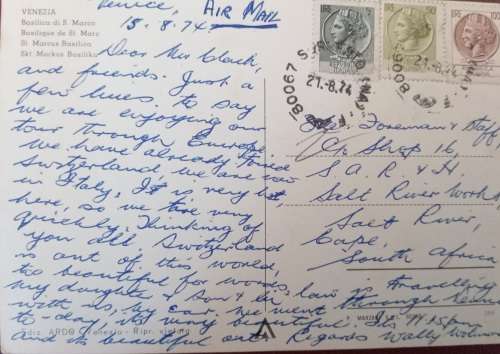 VENEZIA
Basilica di S. Marco
Basilique de St. Marc
St. Marcus Basilica
Skt. Markus Basilika
Venice, AIR MAIL
15-8.74
Dear Mr Clack,
and friends. Just a
few lines. to say
we are enjoying our
tour through Europe.
we have already toured
Switzerland, we are now
in Italy. It is very hot,
here, so we tire very
quickly. Thinking of
you all. Switzerland
is out of this world,
too beautiful for words,
my daughter & son in law is travelling
with us, by car. we went through
to-day, very very beautiful. Its 9.15pm
and is beautiful out. Regards Wally
80067 S
21.-8.74
80067
21.-8.74
Foreman & Staff,
c/o Shop 16,
S. A. R. & H.
Salt River Works,
Salt River,
Cape,
South Africa
Ediz. ARDO Venezia - Ripr. vietata